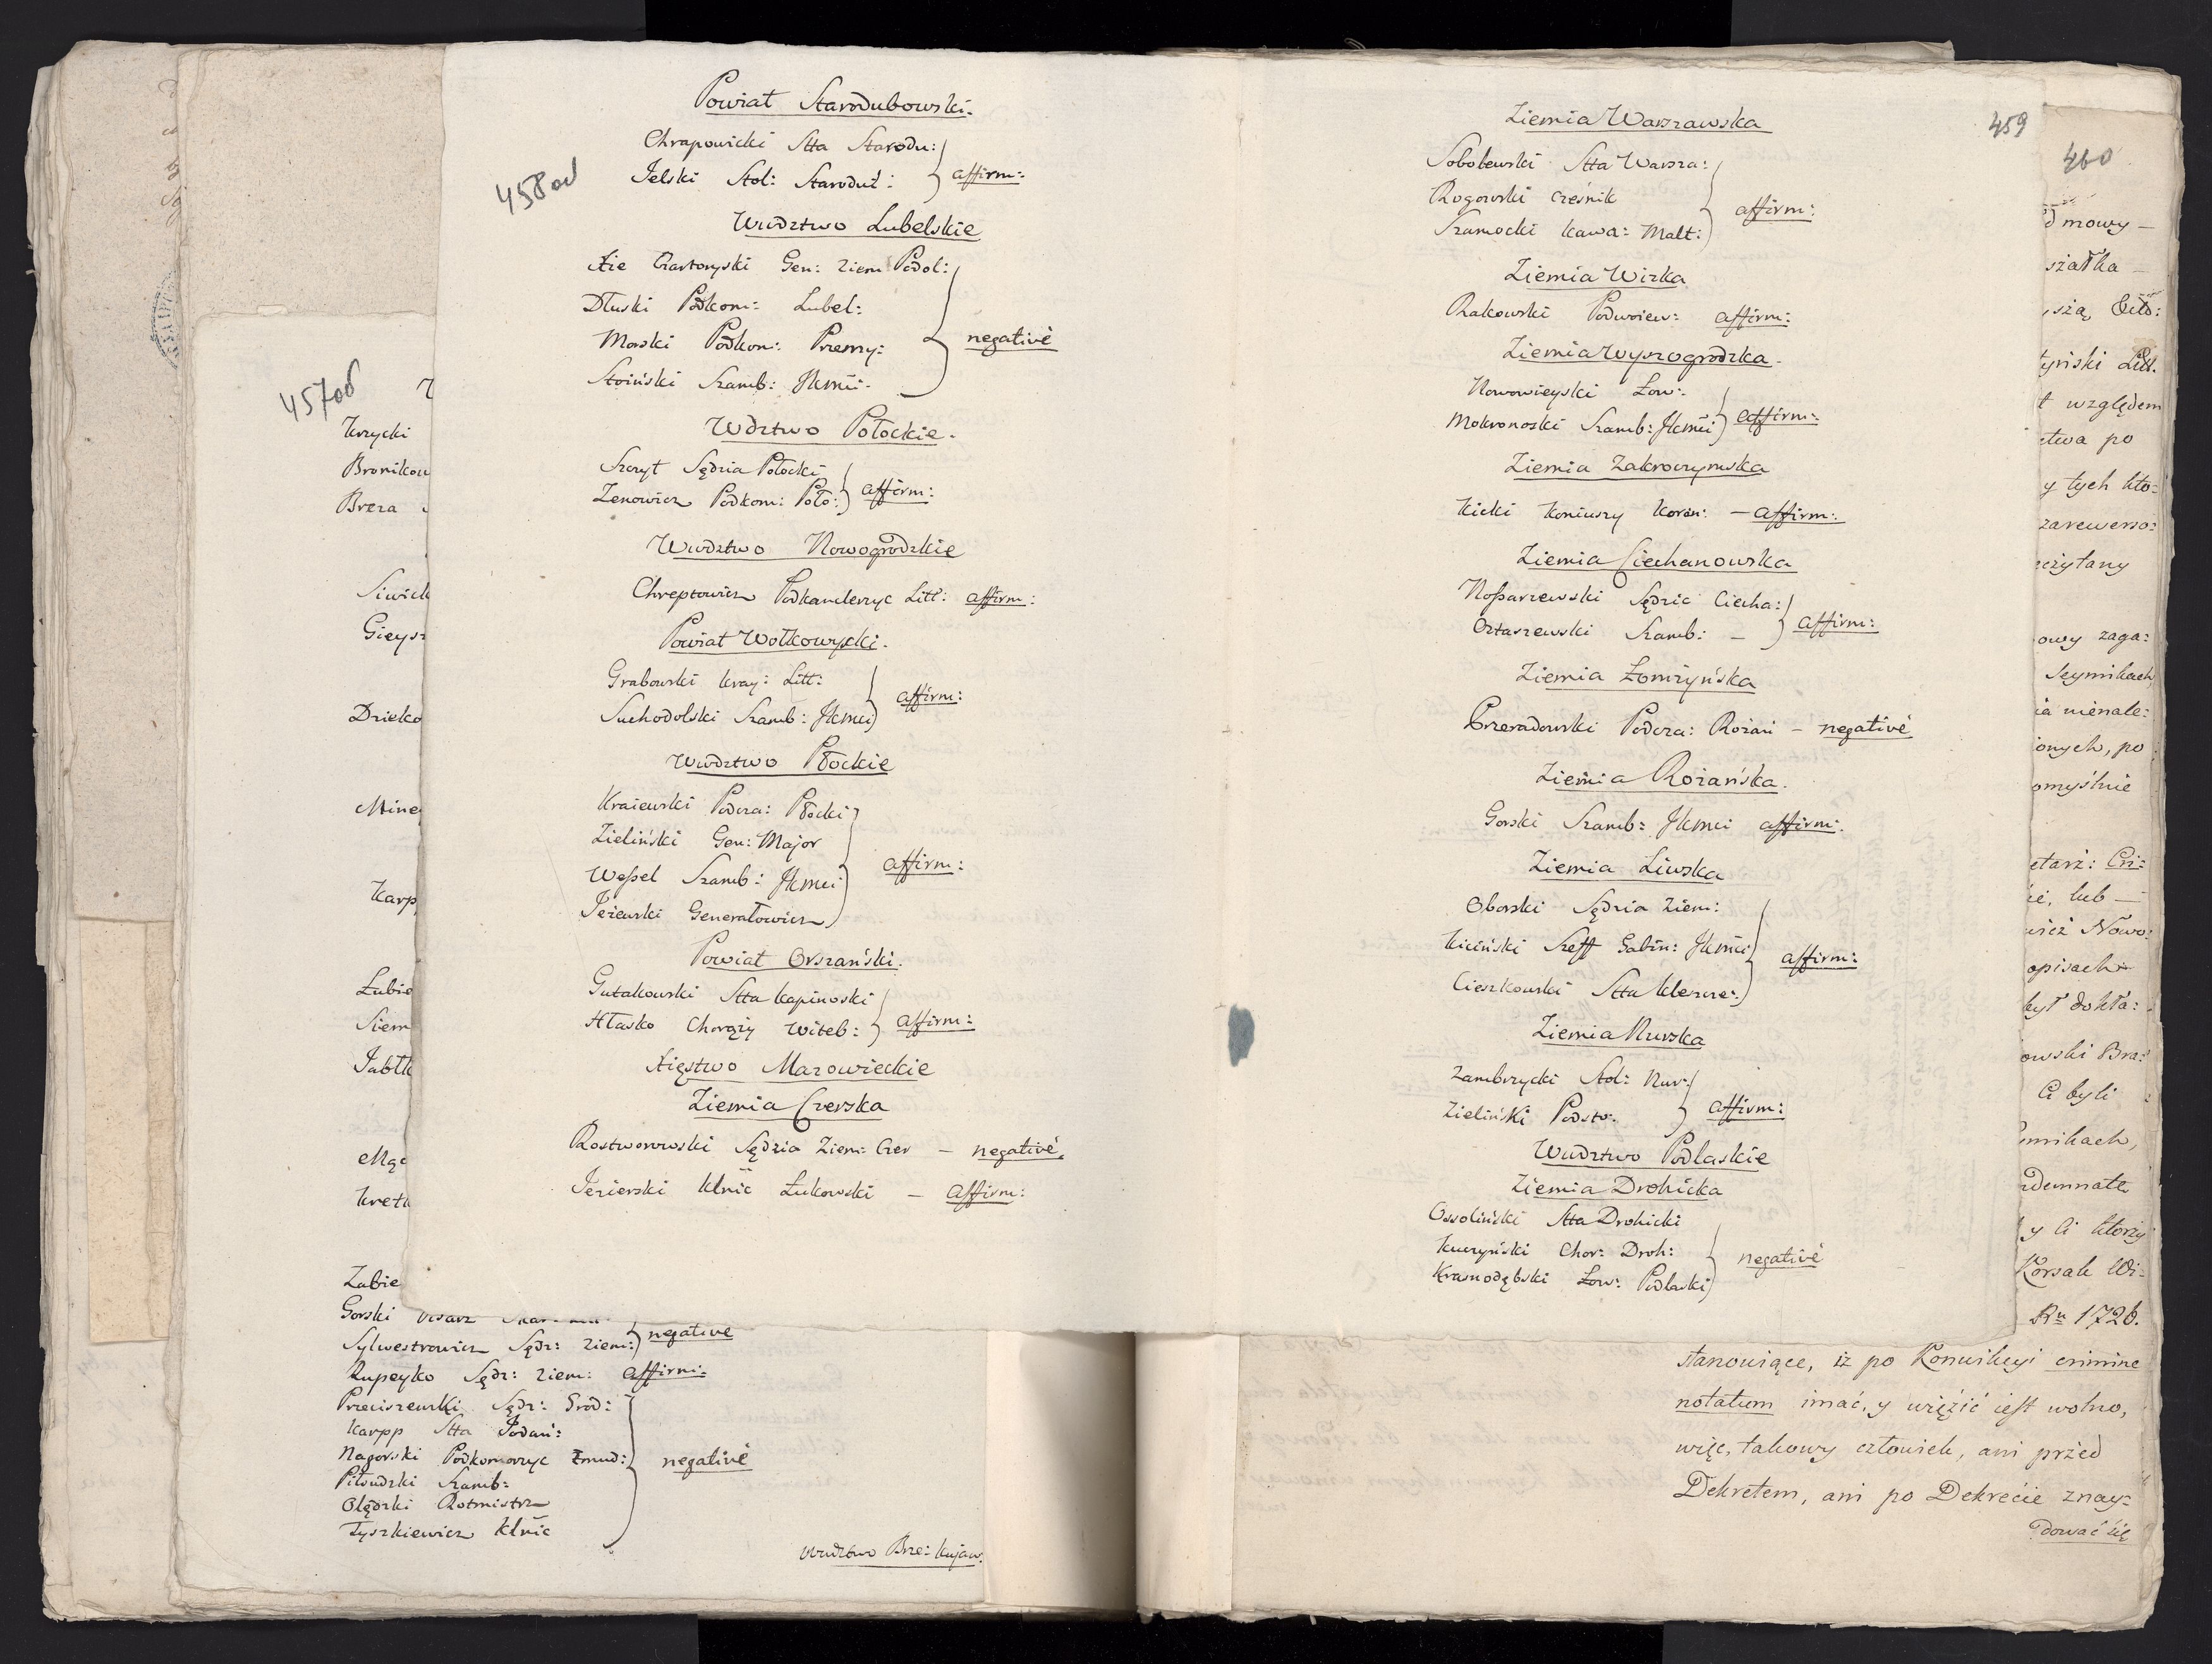 458od
Powiat Starodubowski.
Chrapowicki Stta Starodu:
Jelski Stol: Starodub: affirm:
Wudztwo Lubelskie
Xże Czartoryski Gen: Ziem Podol:
Dłuski Podkom: Lubel:
Morski Podkom: Przemy: negativè
Stoiński Szamb: JKmći.
Wdztwo Połockie.
Szczyt Sędzia Połocki
Zenowicz Podkom: Poło: affirm:
Wudztwo Nowogrodzkie
Chreptowicz Podkanclerzyc Litt: affirm:
Powiat Wołkowyski.
Grabowski kray: Litt:
Suchodolski Szamb: JKmći affirm:
Wudztwo Płockie
Kraiewski Podcza: Płocki
Zieliński Gen: Major
Weßel Szamb: JKmći affirm:
Jeżewski Generałowicz
Powiat Orszański.
Gutakowski Stta kapinoski
Hłasko Chorąży Witeb: affirm:
Xięstwo Mazowieckie
Ziemia Czerska
Rostworowski Sędzia Ziem: Czer – negativè.
Jezierski Klnic Łukowski – affirm:
457od
Krzycki
Bronikow
Breza
Siwick
Gieysz
Dzieko
Mine
Karp
Łubie
Siem
Jabłk
Mąc
Kretk
Zabie
Gorski Pisarz
Sylwestrowicz Sędz: Ziem: negativè
Rupeyko Sędz: Ziem: affirm:
Przeciszewski Sędz: Grod:
Karpp Stta Jodań:
Nagorski Podkomorzyc Żmud: negativè
Piłsudzki Szamb:
Olędzki Rotmistrz
Tyszkiewicz Klnic
Wudztwo Brze: Kujaw:
459
Ziemia Warszawska
Sobolewski Stta Warsza:
Rogowski Cześnik affirm:
Szamocki kawa: Malt:
Ziemia Wizka
Rakowski Podwoiew: affirm:
Ziemia Wyszogrodzka.
Nowowieyski Łow:
Mokronoski Szamb: JKmći affirm:
Ziemia Zakroczymska
Kicki Koniuszy Koron: – affirm:
Ziemia Ciechanowska
Noßarzewski Sędzic Ciecha:
Ortaszewski Szamb: – affirm:
Ziemia Łomżyńska
Przeradowski Podcza: Rożań – negativè
Ziemia Rożańska.
Gorski Szamb: JKmći affirm:
Ziemia Liwska
Oborski Sędzia Ziem:
Kiciński Szeff Gabin: JKmći affirm:
Cieszkowski Stta Kleszcze:
Ziemia Nurska
Zambrzycki Stol: Nur:
Zieliński Podsto: affirm:
Wudztwo Podlaskie
Ziemia Drohicka
Ossoliński Stta Drohicki
Kuczyński Chor: Droh: negativè
Krasnodębski Łow: Podlaski
460
d mowy –
szałka –
szą, Exto:
yński Litt.
t względem
ctwa po
y tych kto:
zarewerso:
czytany
owy zaga:
Seymikach
ia nienale:
onych, po
omyślnie
etarż: Cri:
ie, lub –
wież Nowo:
opisach
był dokła:
owski Bra:
Ci byli
mikach,
ndemnate
y Ci ktorzy
Korsak Wi:
Ru 1726.
stanowiące, iż po Konwikcyi crimine
notatum imać, y więzić iest wolno,
więc, takowy człowiek, ani przed
Dekretem, ani po Dekrecie znay:
dować się